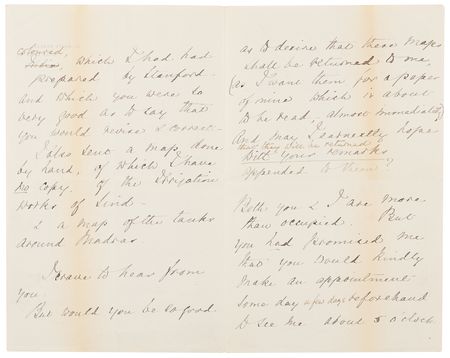 coloured,
India, which I had had
prepared by Stanford -
and which you were so
very good as to say that
you would revise & correct -
I also sent a map, done
by hand, of which I have
no copy, of the Irrigation
Works of Sind -
& a map of the tanks
around Madras.
I crave to hear from
you.
But would you be so good
as to desire that these Maps
shall be returned to me,
(as I want them for a paper
of mine which is about
to be read, almost immediately)
And may I earnestly hope
that they will be returned
With your remarks
appended to them?
Both you & I are more
than occupied. But
you had promised me
that you would kindly
make an appointment
some day a few days beforehand
to see me about 5 o'clock